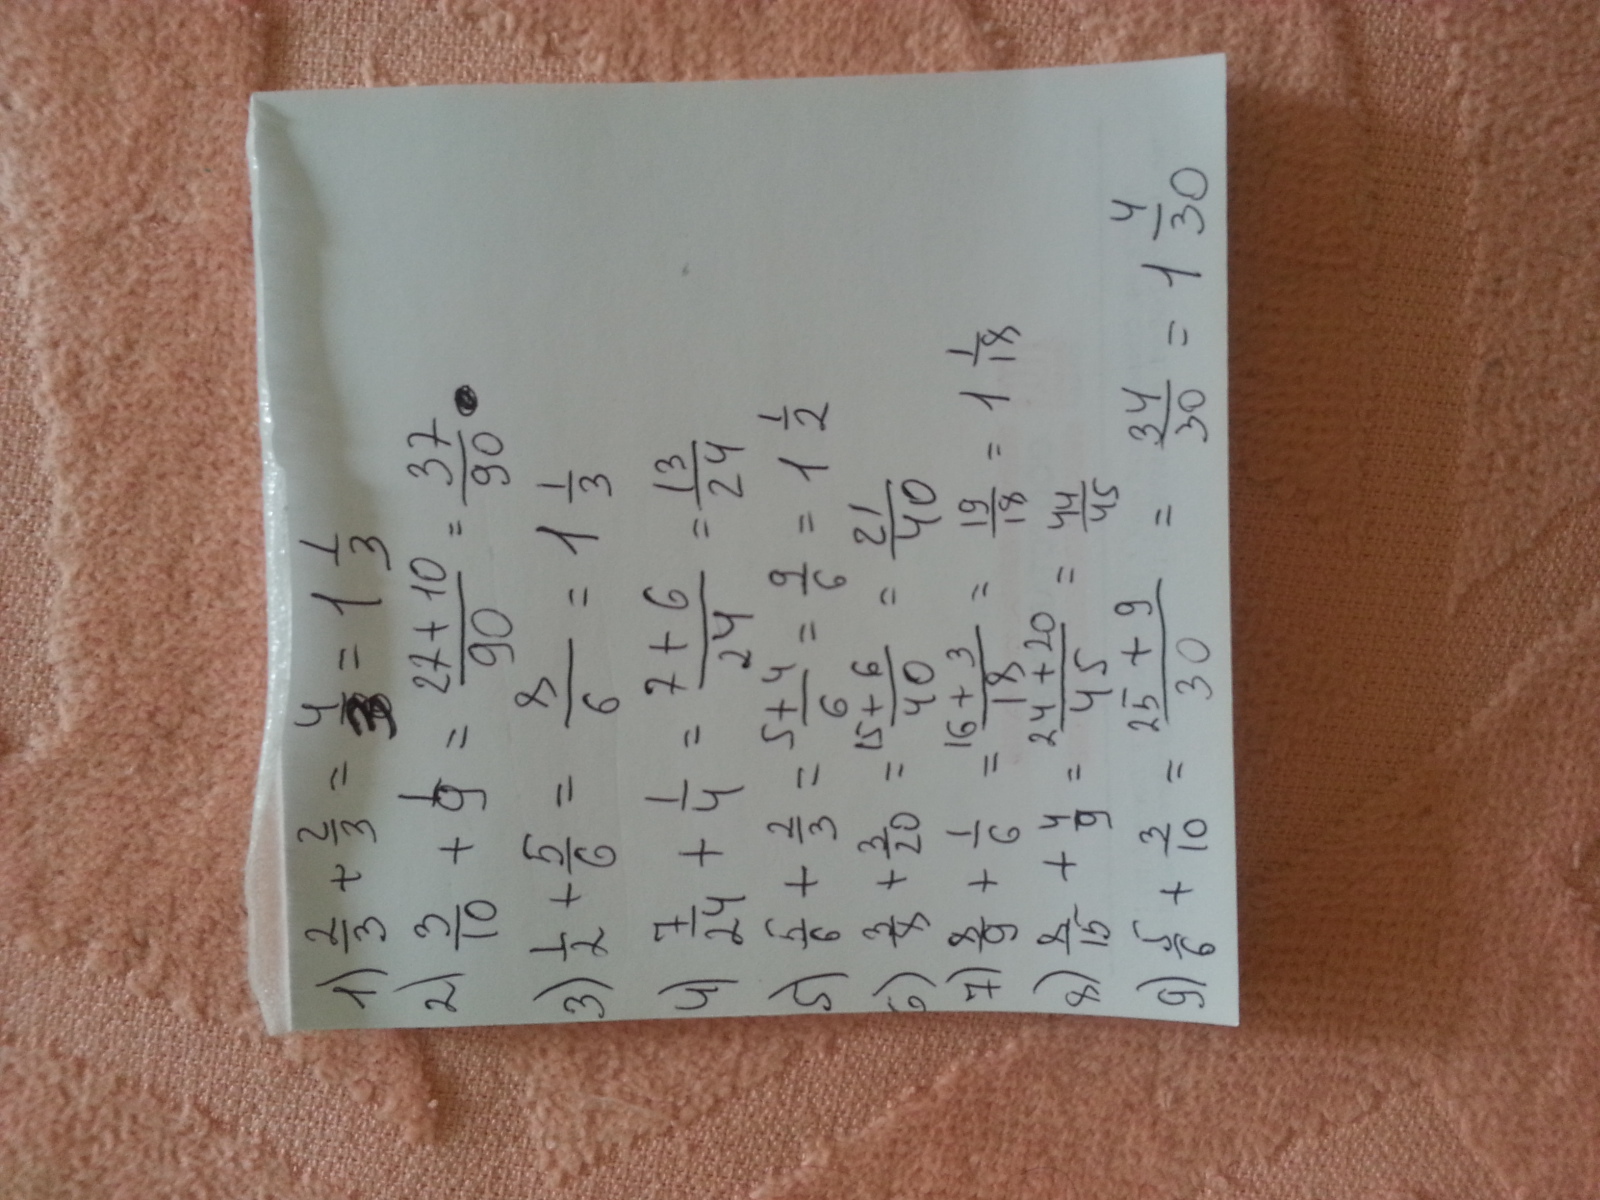 1) 2/3 + 2/3 = 4/3 = 1 1/3
2) 3/10 + 1/9 = 27+10/90 = 37/90
3) 1/2 + 5/6 = 8/6 = 1 1/3
4) 7/24 + 1/4 = 7+6/24 = 13/24
5) 5/6 + 2/3 = 5+4/6 = 9/6 = 1 1/2
6) 3/8 + 3/20 = 15+6/40 = 21/40
7) 8/9 + 1/6 = 16+3/18 = 19/18 = 1 1/18
8) 8/15 + 4/9 = 24+20/45 = 44/45
9) 5/6 + 3/10 = 25+9/30 = 34/30 = 1 4/30